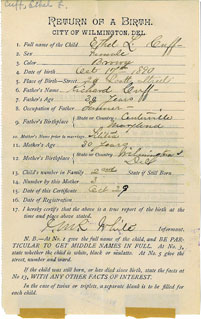 Cuff, Ethel L.
RETURN OF A BIRTH.
CITY OF WILMINGTON, DEL.
1. Full name of the Child Ethel L. Cuff
2. Sex Female
3. Color Brown
4. Date of birth Oct 17th 1890
5. Place of Birth—Street
6. Father's Name Richard Cuff
7. Father's Age 38 Years
8. Occupation of Father
9. Father's Birthplace Centerville
Maryland
10. Mother's Name prior to marriage
11. Mother's Age 30 Years
12. Mother's Birthplace Wilmington
Del
13. Child's number in Family 2nd State if Still Born
14. Number by this Mother
15. Date of this Certificate Oct 29
16. Date of Registration
17. I hereby certify that the above is a true report of the birth at the
time and place above stated.
White
Informant.
N. B.—At No. 1 give the full name of the child, and BE PAR-
TICULAR TO GET MIDDLE NAMES IN FULL. At No. 3,
state whether the child is white, black or mulatto. At No. 5 give the
street, number and ward.
If the child was still born, or has died since birth, state the facts at
No. 17, WITH ANY OTHER FACTS OF INTEREST.
In the case of twins or triplets, a separate blank is to be filled for
each child.